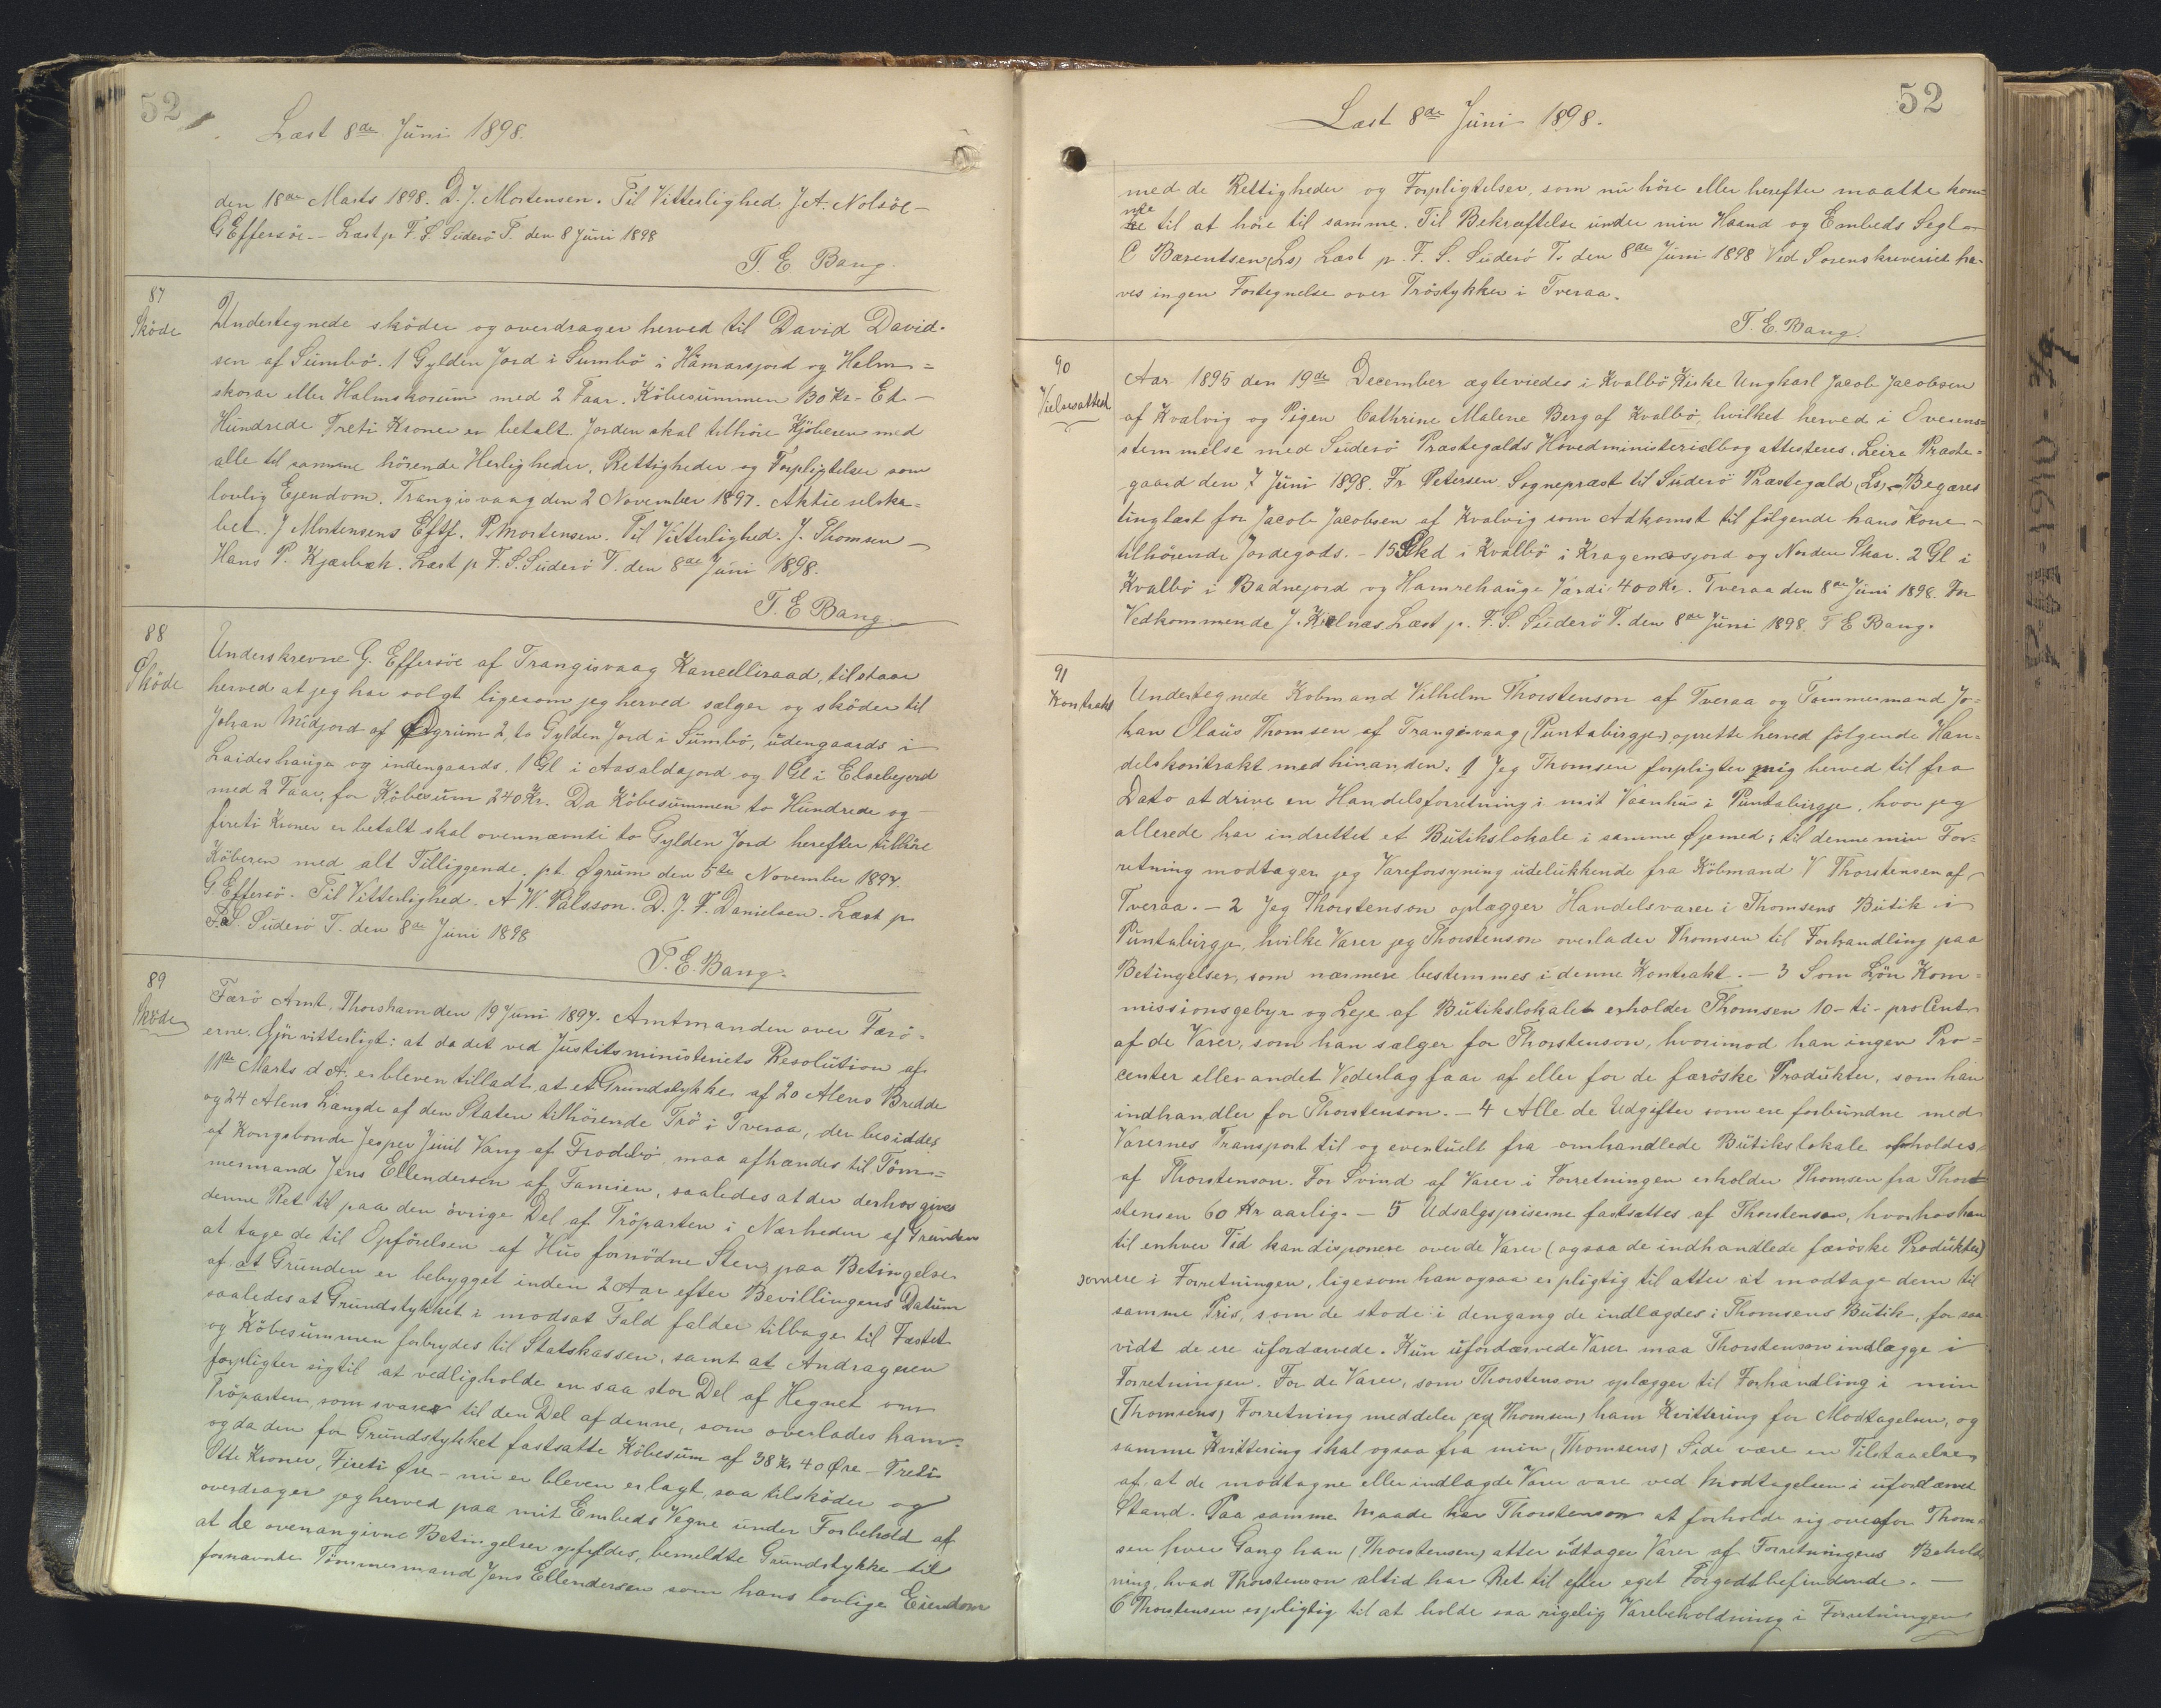 52
Læst 8de Juni 1898.
den 18de Marts 1898. D. J. Mortensen. Til Vitterlighed J. A. Nolsöe -
G Effersöe - Læst p F. S. Süderö T. den 8 Juni 1898
T. E Bang.
87
Sköde
Undertegnede sköder og overdrager herved til David David-
sen af Sumbö. 1 Gylden Jord i Sumbö i Hámarsjord og Halm=
skorar eller Halmskorum med 2 Faar. Köbesummen 130 Kr- Et-
Hundrede Treti Kroner er betalt. Jorden skal tilhöre Kjöberen med
alle til samme hörende Herligheder, Rettigheder og Forpligtelser som
lovlig Ejendom. Trangisvaag den 2 November 1897. Aktieselska=
bet. J Mortensens Eftf. P. Mortensen. Til Vitterlighed. J. Thomsen -
Hans P. Kjærbæk. Læst p F. S. Süderö T. den 8de Juni 1898.
T. E Bang.
88
Sköde
Underskrevne G. Effersöe af Trangisvaag Kancelliraad, tilstaar
herved at jeg har solgt ligesom jeg herved sælger og sköder til
Johan Midjord af Øgrum 2, to Gylden Jord i Sumbö, udengaards i
Laideshauga og indengaards. 1 Gl i Aasaldajord og 1 Gl i Elsebejord
med 2 Faar, for Köbesum 240 Kr. Da Köbesummen to Hundrede og
fireti Kroner er betalt skal ovennævnte to Gylden Jord herefter tilhöre
Köberen med alt Tilliggende. pt Øgrum den 5te November 1897.
G. Effersö. Til Vitterlighed. A W. Pálsson. D. J. F. Danielsen. Læst p.
F. S. Süderö T. den 8de Juni 1898
T. E. Bang.
89
Sköde
Færö Amt, Thorshavn den 19 Juni 1897. Amtmanden over Færö=
erne. Gjör vitterligt: at da det ved Justitsministeriets Resolution af
11te Marts d A. er bleven tilladt, at et Grundstykke af 20 Alens Bredde
og 24 Alens Længde af den Staten tilhörende Trö i Tveraa, der besiddes
af Kongsbonde Jesper Juul Vang af Frodebö, maa afhændes til Töm=
mermand Jens Ellendersen af Famien, saaledes at der derhos gives
denne Ret til paa den övrige Del af Tröparten i Nærheden af Grunden
at tage de til Opförelsen af Hus fornödne Sten, paa Betingelse
af at Grunden er bebygget inden 2 Aar efter Bevillingens Datum
saaledes at Grundstykket i modsat Fald falder tilbage til Fæstet
og Köbesummen forbrydes til Statskassen, samt at Andrageren
forpligter sig til at vedligholde en saa stor Del af Hegnet om
Tröparten, som svarer til den Del af denne, som overlades ham,
og da den for Grundstykket fastsatte Köbesum af 38 Kr 40 Øre - Treti
Otte Kroner, Fireti Øre - nu er bleven erlagt, saa tilsköder og
overdrager jeg herved paa mit Embeds Vegne under Forbehold af
at de ovenangivne Betingelser opfyldes, bemeldte Grundstykke til
fornævnte Tömmermand Jens Ellendersen som hans lovlige Eiendom
52
Læst 8de Juni 1898.
med de Rettigheder og Forpligtelser, som nu höre eller herefter maatte kom=
me til at höre til samme. Til Bekræftelse under min Haand og Embeds Segl -
C Bærentsen (Ls) Læst p. F. S. Süderö T. den 8de Juni 1898 Ved Sorenskriveriet ha-
ves ingen Fortegnelse over Tröstykker i Tveraa.
T. E. Bang.
90
Vielsesattest
Aar 1895 den 19de December ægteviedes i Kvalbö Kirke Ungkarl Jacob Jacobsen
af Kvalvig og Pigen Cathrine Malene Berg af Kvalbö, hvilket herved i Overens=
stemmelse med Süderö Præstegjelds Hovedministerialbog attesteres. Leira Præste=
gaard den 7 Juni 1898. Fr Petersen Sognepræst til Süderö Præstegæld (Ls) - Begæres
tinglæst for Jacob Jacobsen af Kvalvig som Adkomst til følgende hans Kone -
tilhörende Jordegods. - 15 Skd i Kvalbö i Kragenæsjord og Norden Skar. 2 Gl i
Kvalbö i Badnejord og Hamrehauge Værdi 400 Kr. Tveraa den 8de Juni 1898. For
Vedkommende J. Kjølnæs. Læst p. F. S. Süderö T. den 8de Juni 1898. T E Bang.
91
Kontrakt
Undertegnede Kobmand Vilhelm Thorstenson af Tveraa og Tømmermand Jo=
han Olaus Thomsen af Trangisvaag (Puntabirgje), oprette herved følgende Han=
delskontrakt med hinanden: 1 Jeg Thomsen forpligter mig herved til fra
Dato at drive en Handelsforretning i mit Vaanhus i Puntabirgje, hvor jeg
allerede har indrettet et Butikslokale i samme Øjemed; til denne min For=
retning modtager jeg Vareforsyning udelukkende fra Köbmand V Thorstensen af
Tveraa. - 2 Jeg Thorstenson oplægger Handelsvarer i Thomsens Butik i
Puntabirgje, hvilke Varer jeg Thorstenson overlader Thomsen til Forhandling paa
Betingelser, som nærmere bestemmes i denne Kontrakt. - 3 Som Løn Kom=
missionsgebyr og Leje af Butikslokalet erholder Thomsen 10 - ti - proCent
af de Varer, som han sælger for Thorstenson, hvorimod han ingen Pro=
center eller andet Vederlag faar af eller for de færöske Produkter, som han
indhandler for Thorstenson. - 4 Alle de Udgifter som ere forbundne med
Varernes Transport til og eventuelt fra omhandlede Butikslokale afholdes
af Thorstenson. For Svind af Varer i Forretningen erholder Thomsen fra Thor=
stensen 60 Kr aarlig. - 5 Udsalgspriserne fastsættes af Thorstenson, hvorhos han
til enhver Tid kan disponere over de Varer (ogsaa de indhandlede færöske Produkter)
som ere i Forretningen, ligesom han ogsaa er pligtig til atter at modtage dem til
samme Pris, som de stode i dengang de indlagdes i Thomsens Butik, for saa
vidt de ere ufordærvede. Kun ufordærvede Varer maa Thorstenson indlægge i
Forretningen. For de Varer, som Thorstenson oplægger til Forhandling i min
(Thomsens) Forretning meddeler jeg (Thomsen) ham Kvittering for Modtagelsen, og
samme Kvittering skal ogsaa fra min (Thomsens) Side være en Tilstaaelse
af at de modtagne eller indlagde Varer vare ved Modtagelsen i ufordærvet
Stand. Paa samme Maade har Thorstenson at forholde sig overfor Thom=
sen hver Gang han (Thorstensen) atter udtager Varer af Forretningens Behold=
ning, hvad Thorstenson altid har Ret til efter eget Forgodtbefindende. -
6 Thorstensen er pligtig til at holde saa rigelig Varebeholdning i Forretningen